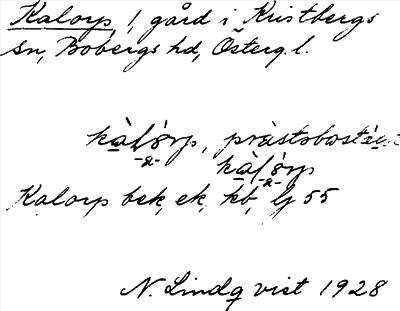 Kalorp, 1, gård i Kristbergs
sn, Bobergs hd, Österg. l.
kàlórp, prästsbostäl
-2-
kàlórp
-2-
Kalorp bek, ek, kb, lj 55
N. Lindqvist 1928